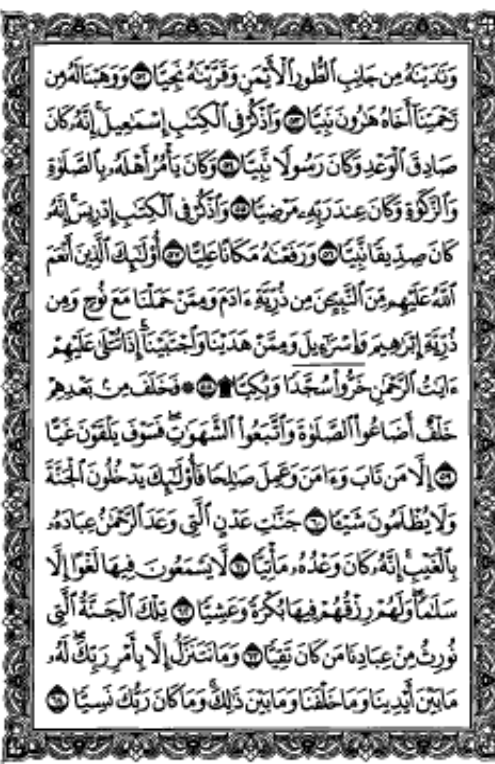 وَنَٰدَيْنَٰهُ مِن جَانِبِ ٱلطُّورِ ٱلْأَيْمَنِ وَقَرَّبْنَٰهُ نَجِيًّا ۝٥٢ وَوَهَبْنَا لَهُۥ مِن
رَّحْمَتِنَآ أَخَاهُ هَٰرُونَ نَبِيًّا ۝٥٣ وَٱذْكُرْ فِى ٱلْكِتَٰبِ إِسْمَٰعِيلَ ۚ إِنَّهُۥ كَانَ
صَادِقَ ٱلْوَعْدِ وَكَانَ رَسُولًا نَّبِيًّا ۝٥٤ وَكَانَ يَأْمُرُ أَهْلَهُۥ بِٱلصَّلَوٰةِ
وَٱلزَّكَوٰةِ وَكَانَ عِندَ رَبِّهِۦ مَرْضِيًّا ۝٥٥ وَٱذْكُرْ فِى ٱلْكِتَٰبِ إِدْرِيسَ ۚ إِنَّهُۥ
كَانَ صِدِّيقًا نَّبِيًّا ۝٥٦ وَرَفَعْنَٰهُ مَكَانًا عَلِيًّا ۝٥٧ أُو۟لَٰٓئِكَ ٱلَّذِينَ أَنْعَمَ
ٱللَّهُ عَلَيْهِم مِّنَ ٱلنَّبِيِّۦنَ مِن ذُرِّيَّةِ ءَادَمَ وَمِمَّنْ حَمَلْنَا مَعَ نُوحٍ وَمِن
ذُرِّيَّةِ إِبْرَٰهِيمَ وَإِسْرَٰٓءِيلَ وَمِمَّنْ هَدَيْنَا وَٱجْتَبَيْنَآ ۚ إِذَا تُتْلَىٰ عَلَيْهِمْ
ءَايَٰتُ ٱلرَّحْمَٰنِ خَرُّوا۟ سُجَّدًا وَبُكِيًّا ۩ ۝٥٨ ۞ فَخَلَفَ مِنۢ بَعْدِهِمْ
خَلْفٌ أَضَاعُوا۟ ٱلصَّلَوٰةَ وَٱتَّبَعُوا۟ ٱلشَّهَوَٰتِ ۖ فَسَوْفَ يَلْقَوْنَ غَيًّا
۝٥٩ إِلَّا مَن تَابَ وَءَامَنَ وَعَمِلَ صَٰلِحًا فَأُو۟لَٰٓئِكَ يَدْخُلُونَ ٱلْجَنَّةَ
وَلَا يُظْلَمُونَ شَيْـًٔا ۝٦٠ جَنَّٰتِ عَدْنٍ ٱلَّتِى وَعَدَ ٱلرَّحْمَٰنُ عِبَادَهُۥ
بِٱلْغَيْبِ ۚ إِنَّهُۥ كَانَ وَعْدُهُۥ مَأْتِيًّا ۝٦١ لَّا يَسْمَعُونَ فِيهَا لَغْوًا إِلَّا
سَلَٰمًا ۖ وَلَهُمْ رِزْقُهُمْ فِيهَا بُكْرَةً وَعَشِيًّا ۝٦٢ تِلْكَ ٱلْجَنَّةُ ٱلَّتِى
نُورِثُ مِنْ عِبَادِنَا مَن كَانَ تَقِيًّا ۝٦٣ وَمَا نَتَنَزَّلُ إِلَّا بِأَمْرِ رَبِّكَ ۖ لَهُۥ
مَا بَيْنَ أَيْدِينَا وَمَا خَلْفَنَا وَمَا بَيْنَ ذَٰلِكَ ۚ وَمَا كَانَ رَبُّكَ نَسِيًّا ۝٦٤